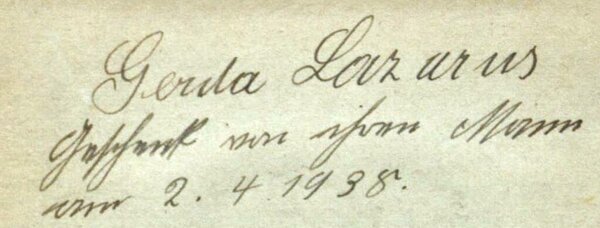 Gerda Lazarus
Geschenk von ihren Mann
am 2. 4. 1938.